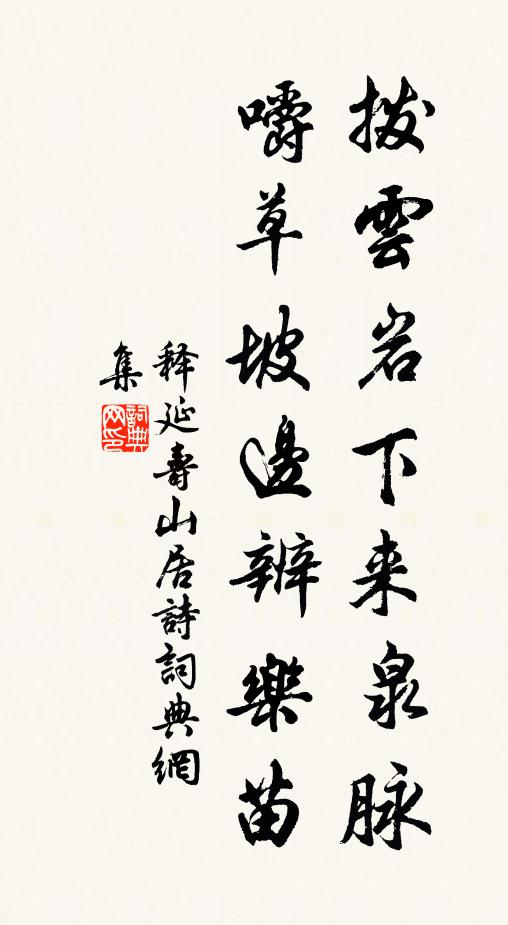 拨雲岩下来泉脉
嚼草坡邊辨樂苗
释延壽山居詩詞典網
集
詞典网印